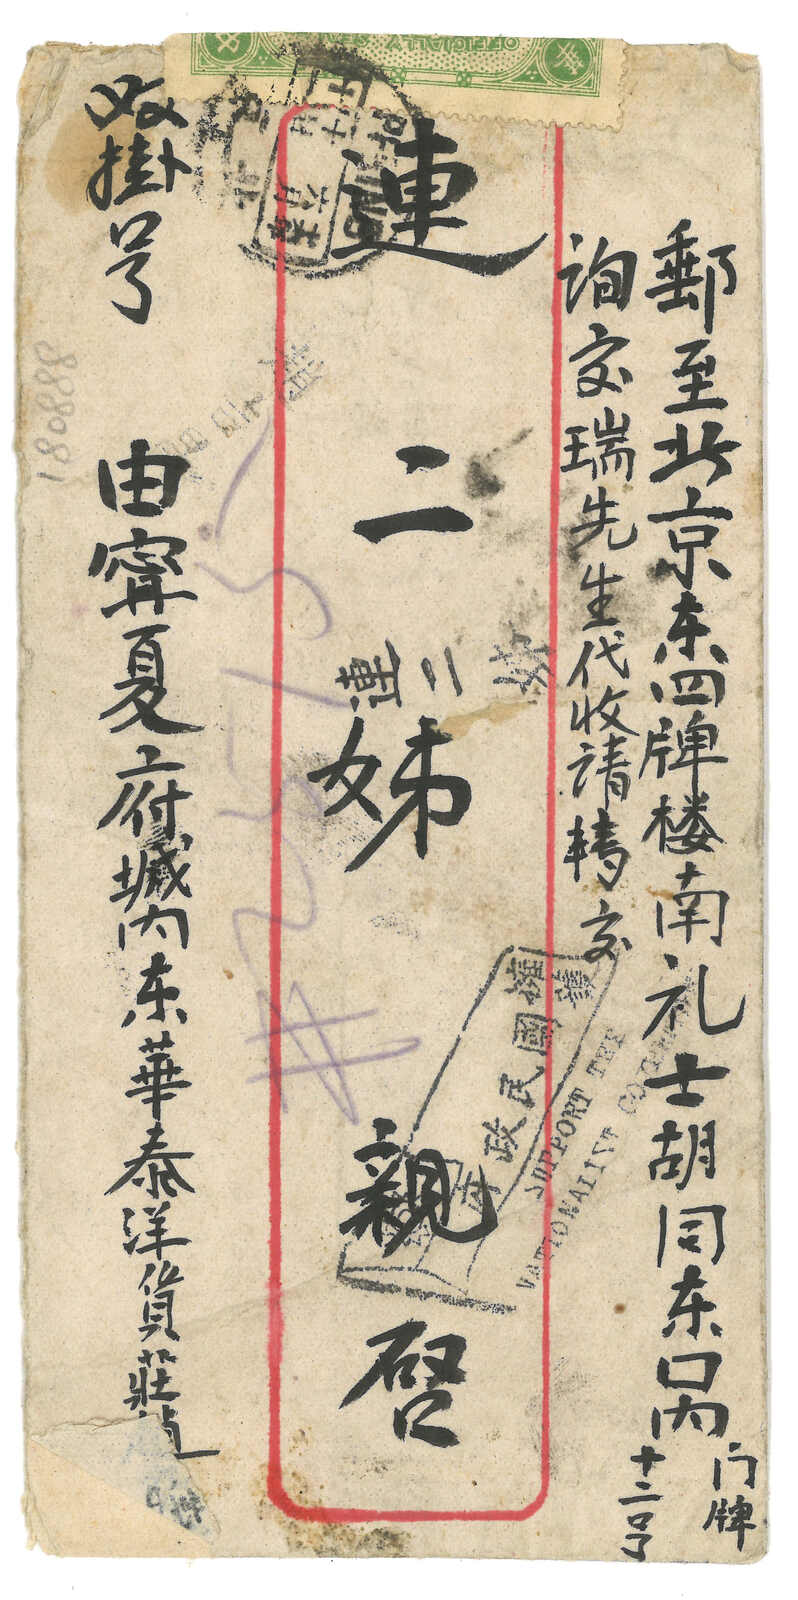 郵至北京东四牌楼南礼士胡同东口内
门牌
十二号
詢交瑞先生代收请转交
連二姊親啓
連二
双掛号
由寧夏府城内东華泰洋貨莊
擁護國民政府
SUPPORT THE
NATIONALIST
OFFICIALLY SEAL
888081